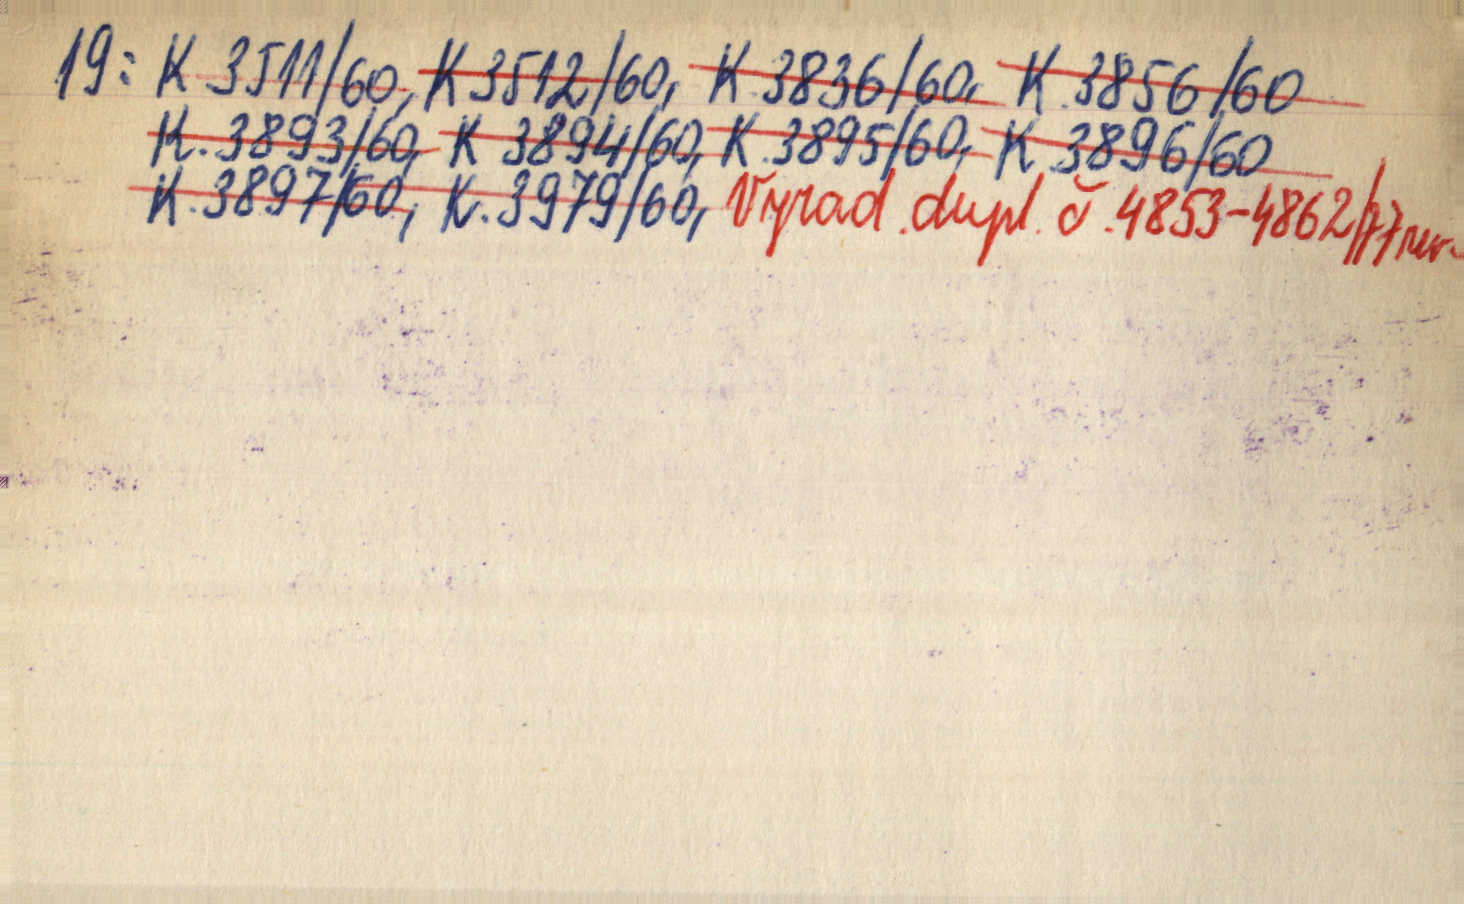 19: K 3511/60, K 3512/60, K.3836/60, K.3856/60
K.3893/60, K 3894/60, K.3895/60, K.3896/60
K.3897/60, K.3979/60, Vyrad.dupl.č.4853-4862/77 rev.